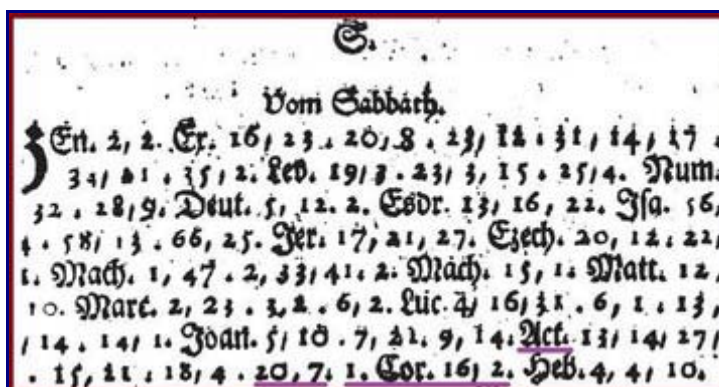 S.
Vom Sabbath.
Gen. 2, 2. Ex. 16, 23. 20, 8. 23, 12. 31, 14, 17.
34, 21. 35, 2. Lev. 19, 3. 23, 3, 15. 25, 4. Num.
32. 28, 9. Deut. 5, 12. 2. Esdr. 13, 16, 22. Isa. 56,
4. 58, 13. 66, 25. Jer. 17, 21, 27. Ezech. 20, 12. 22,
1. Mach. 1, 47. 2, 33, 41. 2. Mach. 15, 1. Matt. 12
10. Marc. 2, 23. 3, 2. 6, 2. Luc. 4, 16, 31. 6, 1. 13,
14. 14, 1. Joan. 5, 10. 7, 21. 9, 14. Act. 13, 14, 27,
15, 21. 18, 4. 20, 7. 1. Cor. 16, 2. Heb. 4, 4, 10.